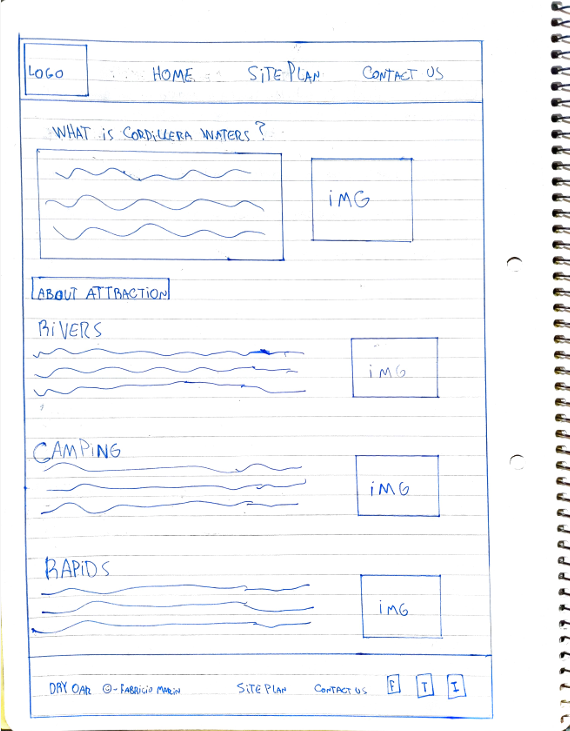 LOGO HOME SiTE PLAN CONTACT US
WHAT iS CORDiLLERA WATERS?
iMG
ABOUT ATTRACTiON
RiVERS
iMG
CAMPiNG
iMG
RAPiDS
iMG
DRY OAR ©-FABRiCiO MARiN SiTE PLAN CONTACT US F T I